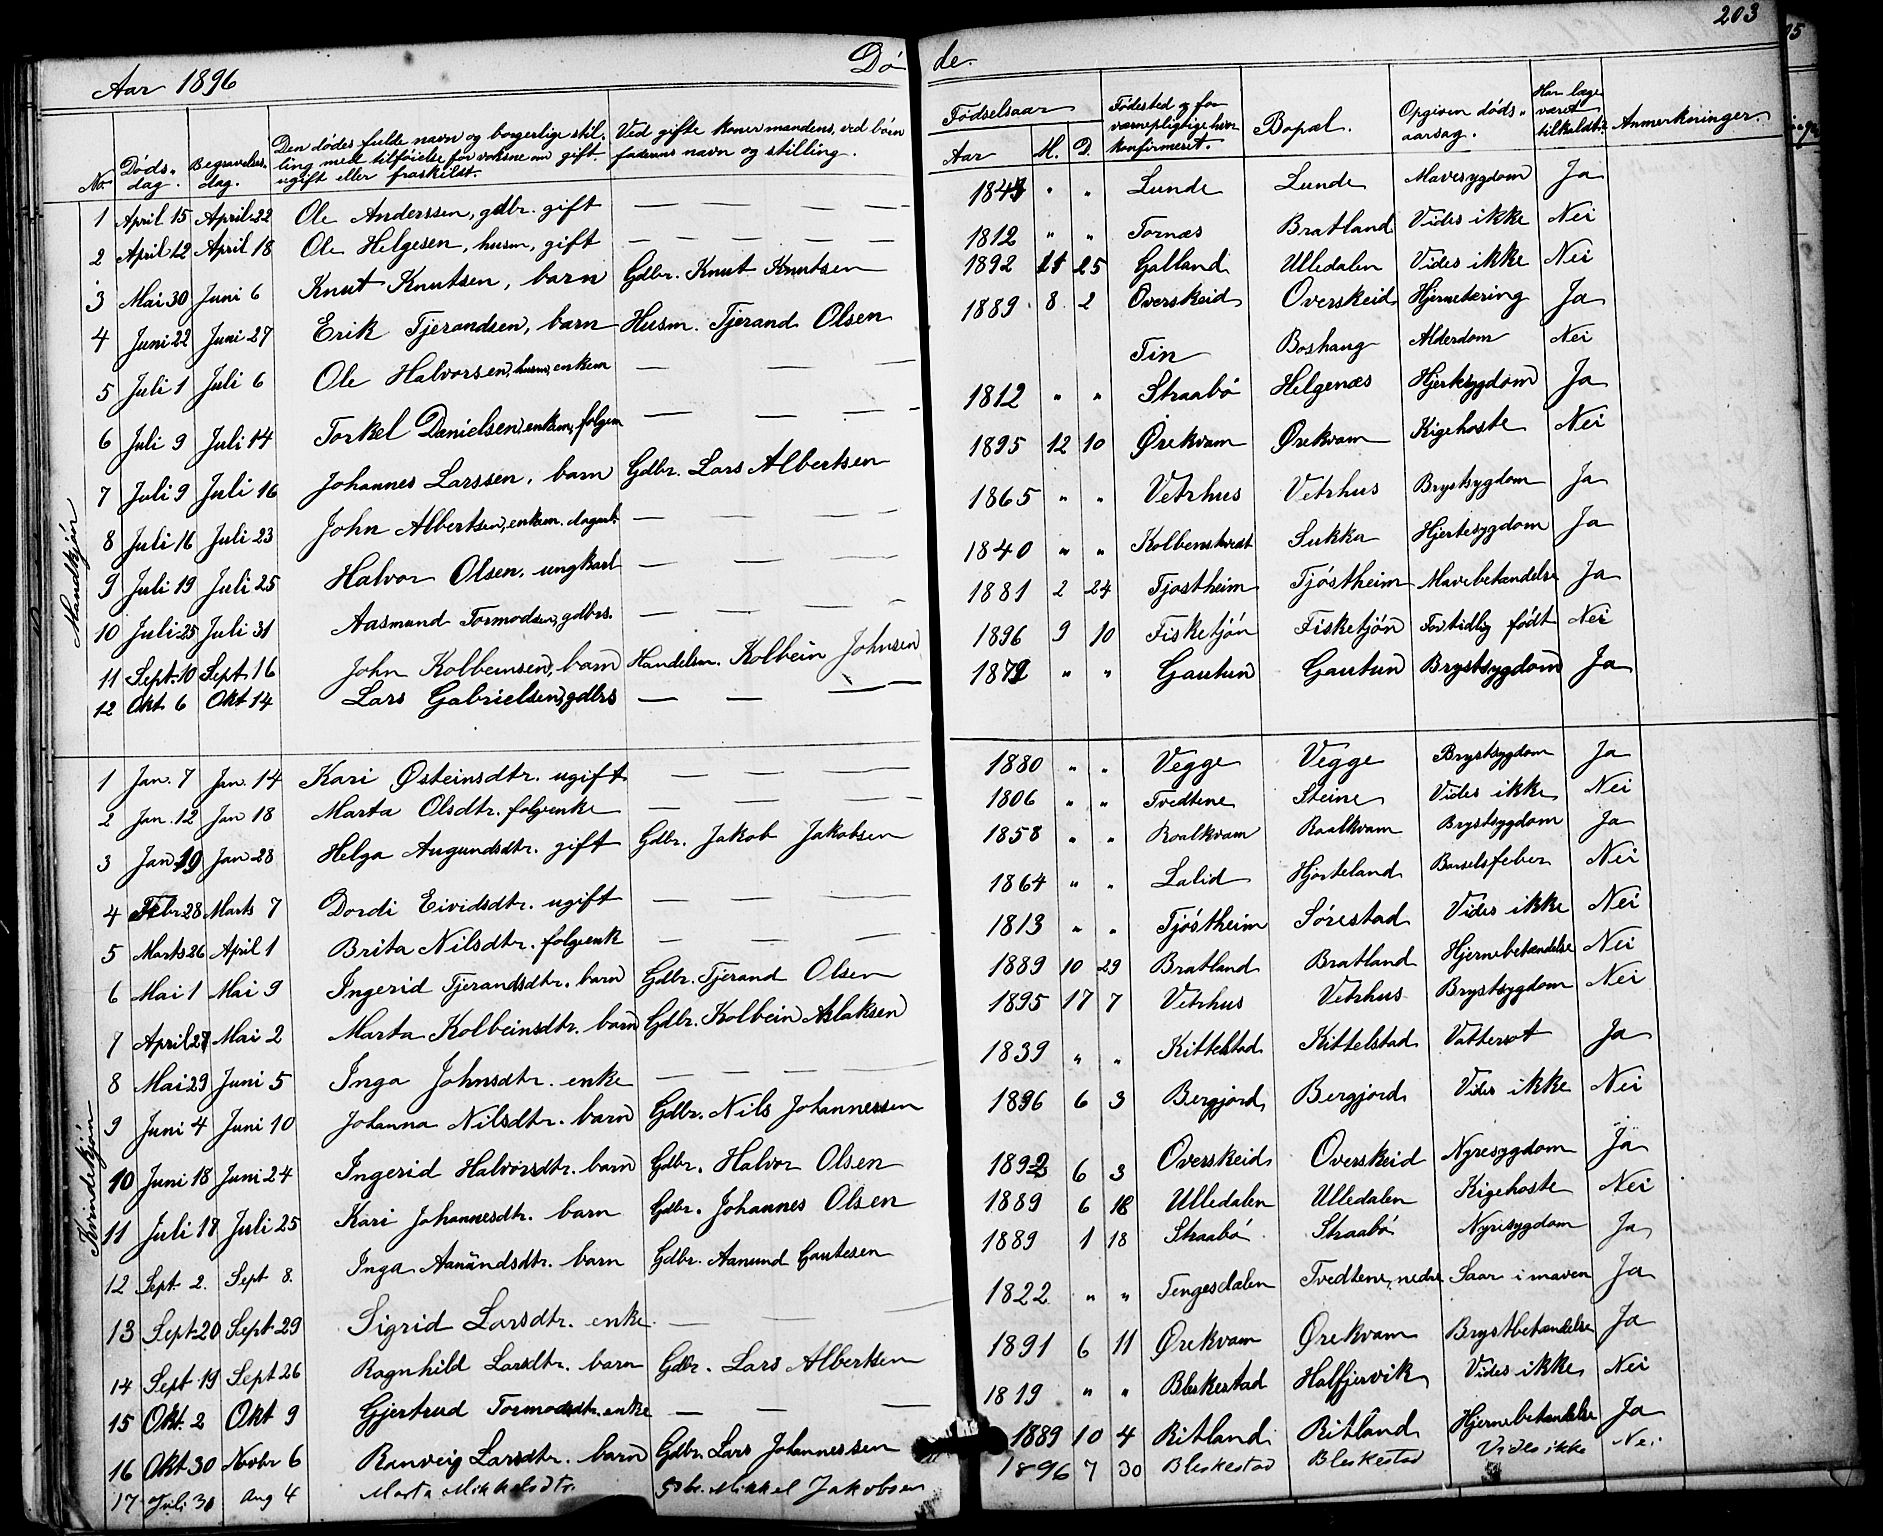 203
Aar 1896 Døde.
No. Døds-dag. Begravelses-dag. Den dødes fulde navn og borgerlige stilling med tilføielse for voksne om gift, ugift eller fraskilst. Ved gifte koner mandens, ved børn faderens navn og stilling. Fødselsaar Aar M. D. Fødested og for værnepligtige hvor konfirmeret. Bopæl. Opgiven døds-aarsag. Har læge været tilkaldt? Anmerkninger.
Mandkjøn
1 April 15 April 22 Ole Anderssen, gdbr. gift — — — — 1847 " " Lunde Lunde Mavesygdom Ja
2 April 12 April 18 Ole Helgesen, husm, gift — — — — 1812 " " Tornæs Bratland Vides ikke Nei
3 Mai 30 Juni 6 Knut Knutsen, barn Gdbr. Knut Knutsen 1892 25 Galland Ulledalen Vides ikke Nei
4 Juni 22 Juni 27 Erik Tjerandsen, barn Husm. Tjerand Olsen 1889 8 2 Overskeid Overskeid Hjernetæring Ja
5 Juli 1 Juli 6 Ole Halvorsen, husm, enkem — — — Tin Boshaug Alderdom Nei
6 Juli 9 Juli 14 Torkel Danielsen, enkem, folgem — — — — 1812 " " Straabø Helgenæs Hjertesygdom Ja
7 Juli 9 Juli 16 Johannes Larssen, barn Gdbr. Lars Albertsen 1895 12 10 Ørekvam Ørekvam Kigehoste Nei
8 Juli 16 Juli 23 John Albertsen, enkem. dagarb. — — — — 1865 " " Vetrhus Vetrhus Brystsygdom Ja
9 Juli 19 Juli 25 Halvor Olsen, ungkarl — — — — 1840 " " Kolbenstvedt Sukka Hjertesygdom Ja
10 Juli 25 Juli 31 Aasmund Tormodsen, gdbrs. — — — — 1881 2 24 Tjostheim Tjøstheim Mavebetændelse Ja
11 Sept. 10 Sept. 16 John Kolbeinsen, barn Handelsm. Kolbein Johnsen 1896 9 10 Fisketjøn Fisketjøn For tidlig født Nei
12 Okt 6 Okt 14 Lars Gabrielsen, gdbrs — — — — 1879 " " Gautun Gautun Brystsygdom Ja
Kvindekjøn
1 Jan. 7 Jan. 14 Kari Østeinsdtr. ugift — — — 1880 " " Vegge Vegge Brystsygdom Ja
2 Jan. 12 Jan 18 Marta Olsdtr. folgeenke — — — 1806 " " Tvedtene Steine Vides ikke Nei
3 Jan 19 Jan 28 Helga Augundsdtr. gift Gdbr. Jakob Jakobsen 1858 " " Roalkvam Roalkvam Brystsygdom Ja
4 Febr 28 Marts 7 Dordi Eividsdtr. ugift — — — 1864 " " Lalid Hjorteland Barselsfeber Nei
5 Marts 26 April 1 Brita Nilsdtr. folgeenk — — — 1813 " " Tjøstheim Sørestad Vides ikke Nei
6 Mai 1 Mai 9 Ingerid Tjerandsdtr. barn Gdbr. Tjerand Olsen 1889 10 29 Bratland Bratland Hjernebetændelse Nei
7 April 27 Mai 2 Marta Kolbeinsdtr. barn Gdbr. Kolbein Aslaksen 1895 17 7 Vetrhus Vetrhus Brystsygdom Nei
8 Mai 29 Juni 5 Inga Johnsdtr. enke — — — — 1839 " " Kittelstad Kittelstad Vattersot Ja
9 Juni 4 Juni 10 Johanna Nilsdtr. barn Gdbr. Nils Johannessen 1896 6 3 Bergjord Bergjord Vides ikke Nei
10 Juni 18 Juni 24 Ingerid Halvorsdtr. barn Gdbr. Halvor Olsen 1892 6 3 Overskeid Overskeid Nyresygdom Ja
11 Juli 17 Juli 25 Kari Johannesdtr. barn Gdbr. Johannes Olsen 1889 6 18 Ulledalen Ulledalen Kigehoste Nei
12 Sept. 2. Sept 8. Inga Aanundsdtr. barn Gdbr. Aanund Gautesen 1889 1 18 Straabø Straabø Nyresygdom Ja
13 Sept 20 Sept 29 Sigrid Larsdtr. enke — — — 1822 " " Tengesdalen Tvedtene, nedre Saar i maven Ja
14 Sept 19 Sept 26 Ragnhild Larsdtr. barn Gdbr. Lars Albertsen 1891 6 11 Ørekvam Ørekvam Brystbetændelse Ja
15 Okt. 2 Okt 9 Gjertrud Tormodsdtr. enke — — — 1819 " " Bleskestad Halfjervik Vides ikke Nei
16 Okt 30 Novbr 6 Ranveig Larsdtr. barn Gdbr. Lars Johannessen 1889 10 4 Ritland Ritland Hjernebetændelse Ja
17 Juli 30 Aug 4 Marta Mikkelsdtr. Gdbr. Mikkel Jakobsen 1896 7 30 Bleskestad Bleskestad Vides ikke Nei